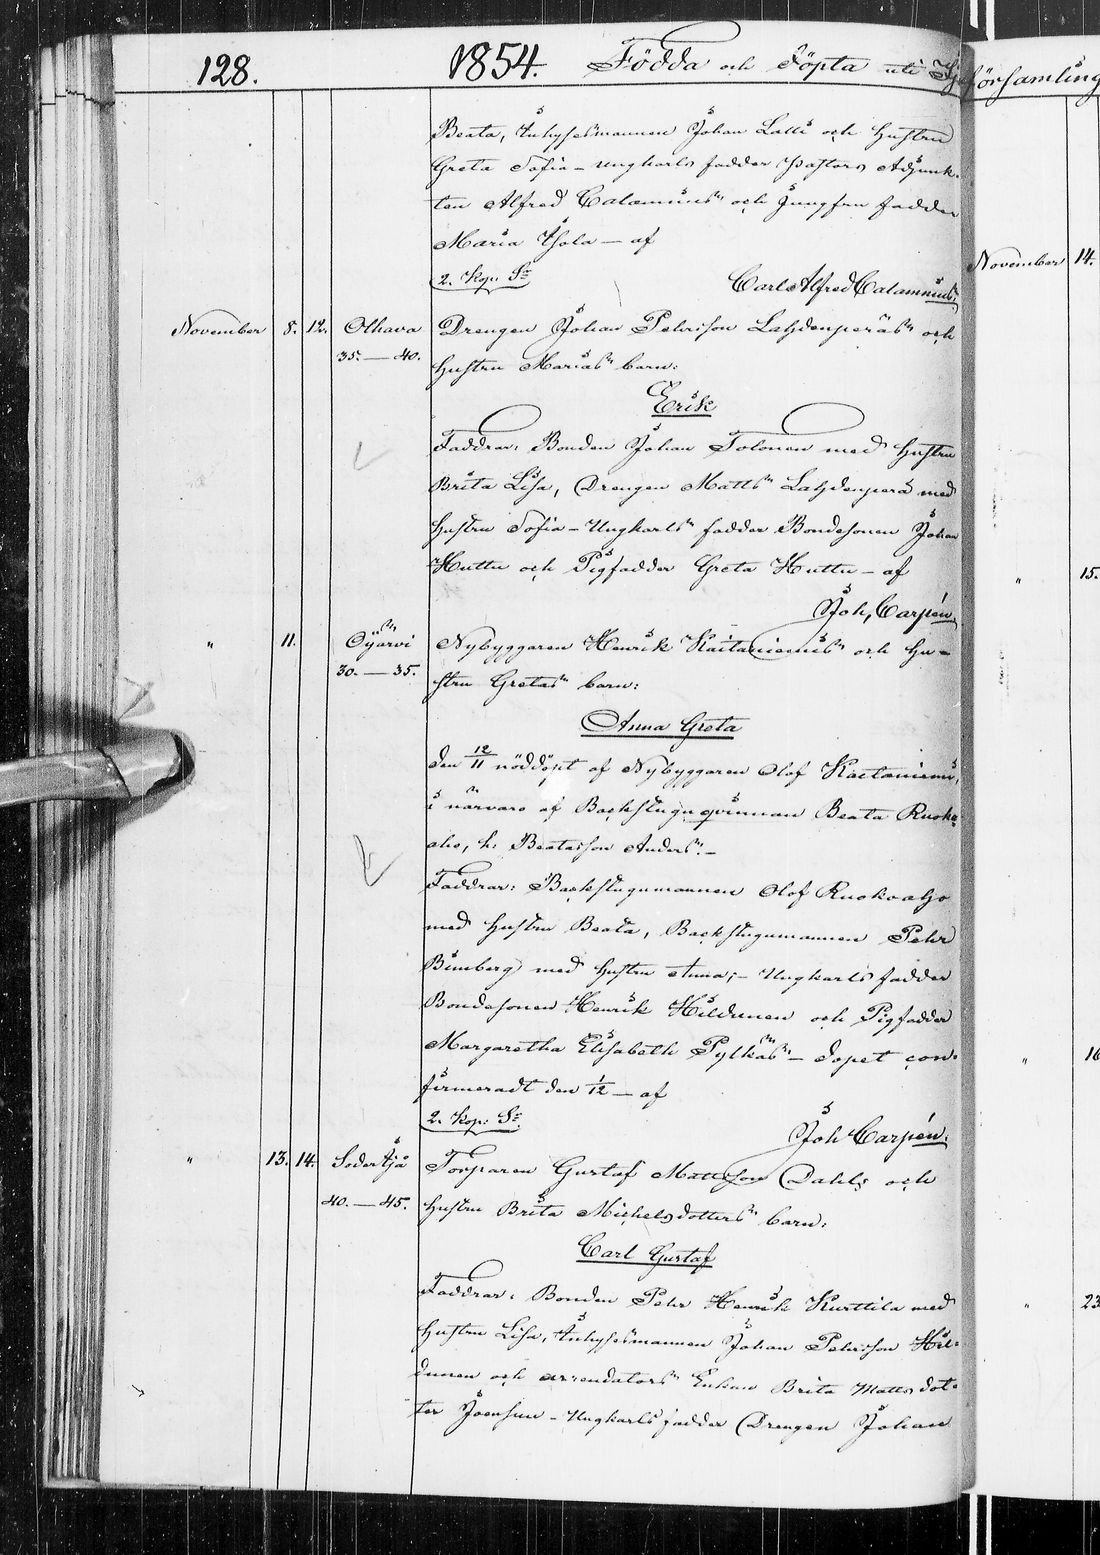 128. 1854. Födda och Döpta uti Ijo församling
Beata, Inhysesmannen Johan Latti och hustru
Greta Sofia – Ungkarls fadder Pastors Adjunk-
ten Alfred Calamnius och Jungfru fadder
Maria Thola – af
2. kop: Sr Carl Alfred Calamnius.
November 8. 12. Olhava Drengen Johan Pehrsson Lahdenperäs och
35.–40. hustru Marias barn:
Erik
Faddrar: Bonden Johan Tolonen med hustru
Brita Lisa, Drengen Matts Lahdenperä med
hustru Sofia – Ungkarls fadder Bondesonen Johan
Huttu och Pigfadder Greta Huttu – af
Joh, Carpén.
" 11. Oÿarvi Nybyggaren Henrik Kaitaniemis och hu-
30.–35. stru Gretas barn:
Anna Greta
den 12/11 nöddöpt af Nybyggaren Olof Kaitaniemi,
i närvaro af Backstuguqvinnan Beata Ruoko-
aho, h: Beatas son Anders. –
Faddrar: Backstugumannen Olof Ruokoaho
med hustru Beata, Backstugumannen Pehr
Bimberg med hustru Anna; – Ungkarls fadder
Bondesonen Henrik Hildunen och Pigfadder
Margaretha Elisabeth Pylkäs – dopet con-
firmeradt den 1/12 – af
2. kop: Sr.
Joh Carpén.
" 13. 14. Söder Ijå Torparen Gustaf Mattsson Dahls och
40.–45. hustru Brita Michelsdotters barn:
Carl Gustaf
Faddrar: Bonden Pehr Henrik Kurttila med
hustru Lisa, Inhysesmannen Johan Pehrsson Hil-
dunen och arrendators Enkan Brita Matts dot-
ter Joensuu – Ungkarls fadder Drengen Johan
November 14.
" 15.
" 16
" 23